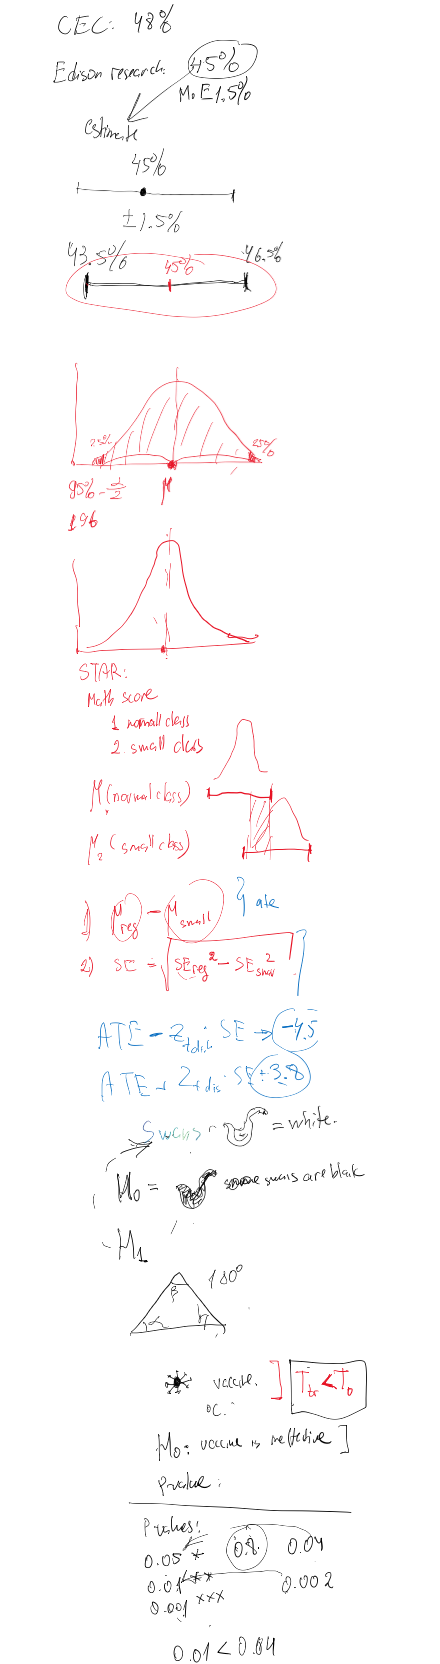 CEC: 48%
Edison research: 45%
M.E 1.5%
estimate
45%
±1.5%
43.5% 45% 46.5%
2.5% 2.5%
95% - α/2
M
1.96
STAR:
Math score
1. normall class
2. small class
M1 (normal class)
M2 (small class)
1) Mreg - Msmall } ate
2) SE = √SEreg² - SEsmall²
ATE - Z+dis. · SE → -4.5
ATE + Z+dis · SE ÷ 3.8
Swans - = white.
H0 = some swans are black
H1
β 180°
α γ
vaccine. ] Ttr < T0
°C.
H0: vaccine is ineffective ]
P-value:
P values:
0.05 * 0.8. 0.04
0.01 ** 0.002
0.001 ***
0.01 < 0.04